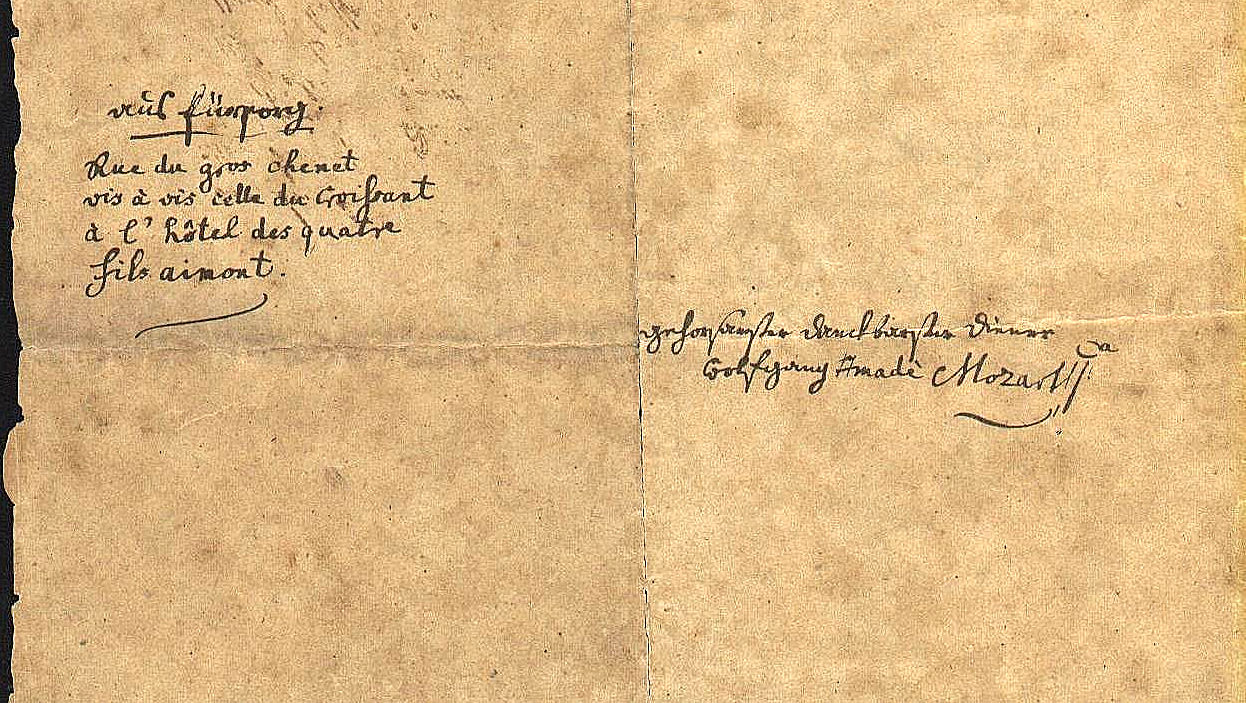 aus fürsorg.
Rue du gros chenet
vis à vis celle du Croissant
à l'hôtel des quatre
fils aimont.
gehorsamster danckbarster diener
Wolfgang Amadè Mozart